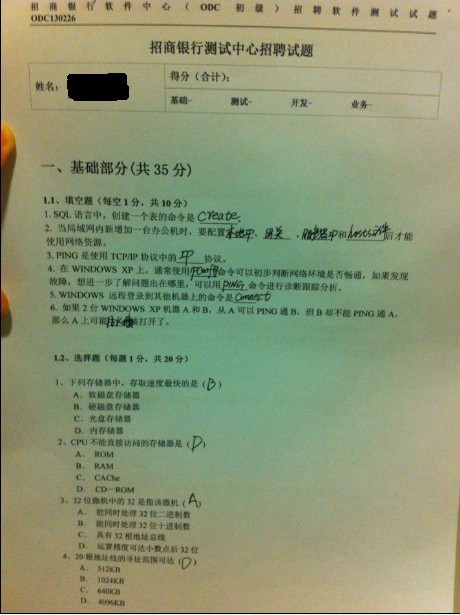 招商银行软件中心（ODC 初级）招聘软件测试试题
ODC130226
招商银行测试中心招聘试题
姓名：
得分（合计）：
基础- 测试- 开发- 业务-
一、基础部分(共 35 分)
1.1、填空题（每空 1 分，共 10 分）
1. SQL 语言中，创建一个表的命令是 Create.
2. 当局域网内新增加一台办公机时，要配置 、网关、和 hosts文件后才能
使用网络资源。
3. PING 是使用 TCP/IP 协议中的 IP 协议。
4. 在 WINDOWS XP 上，通常使用 命令可以初步判断网络环境是否畅通，如果发现
故障，想进一步了解问题出在哪里，可以用 PING 命令进行诊断跟踪分析。
5. WINDOWS 远程登录到其他机器上的命令是 Connect
6. 如果 2 台 WINDOWS XP 机器 A 和 B，从 A 可以 PING 通 B，但 B 却不能 PING 通 A，
那么 A 上可能 被打开了。
1.2、选择题（每题 1 分，共 20 分）
1、下列存储器中，存取速度最快的是（B）
A. 软磁盘存储器
B. 硬磁盘存储器
C. 光盘存储器
D. 内存储器
2、CPU 不能直接访问的存储器是（D）
A. ROM
B. RAM
C. CAChe
D. CD－ROM
3、32 位微机中的 32 是指该微机（A）
A. 能同时处理 32 位二进制数
B. 能同时处理 32 位十进制数
C. 具有 32 根地址总线
D. 运算精度可达小数点后 32 位
4、20 根地址线的寻址范围可达（D）
A. 512KB
B. 1024KB
C. 640KB
D. 4096KB